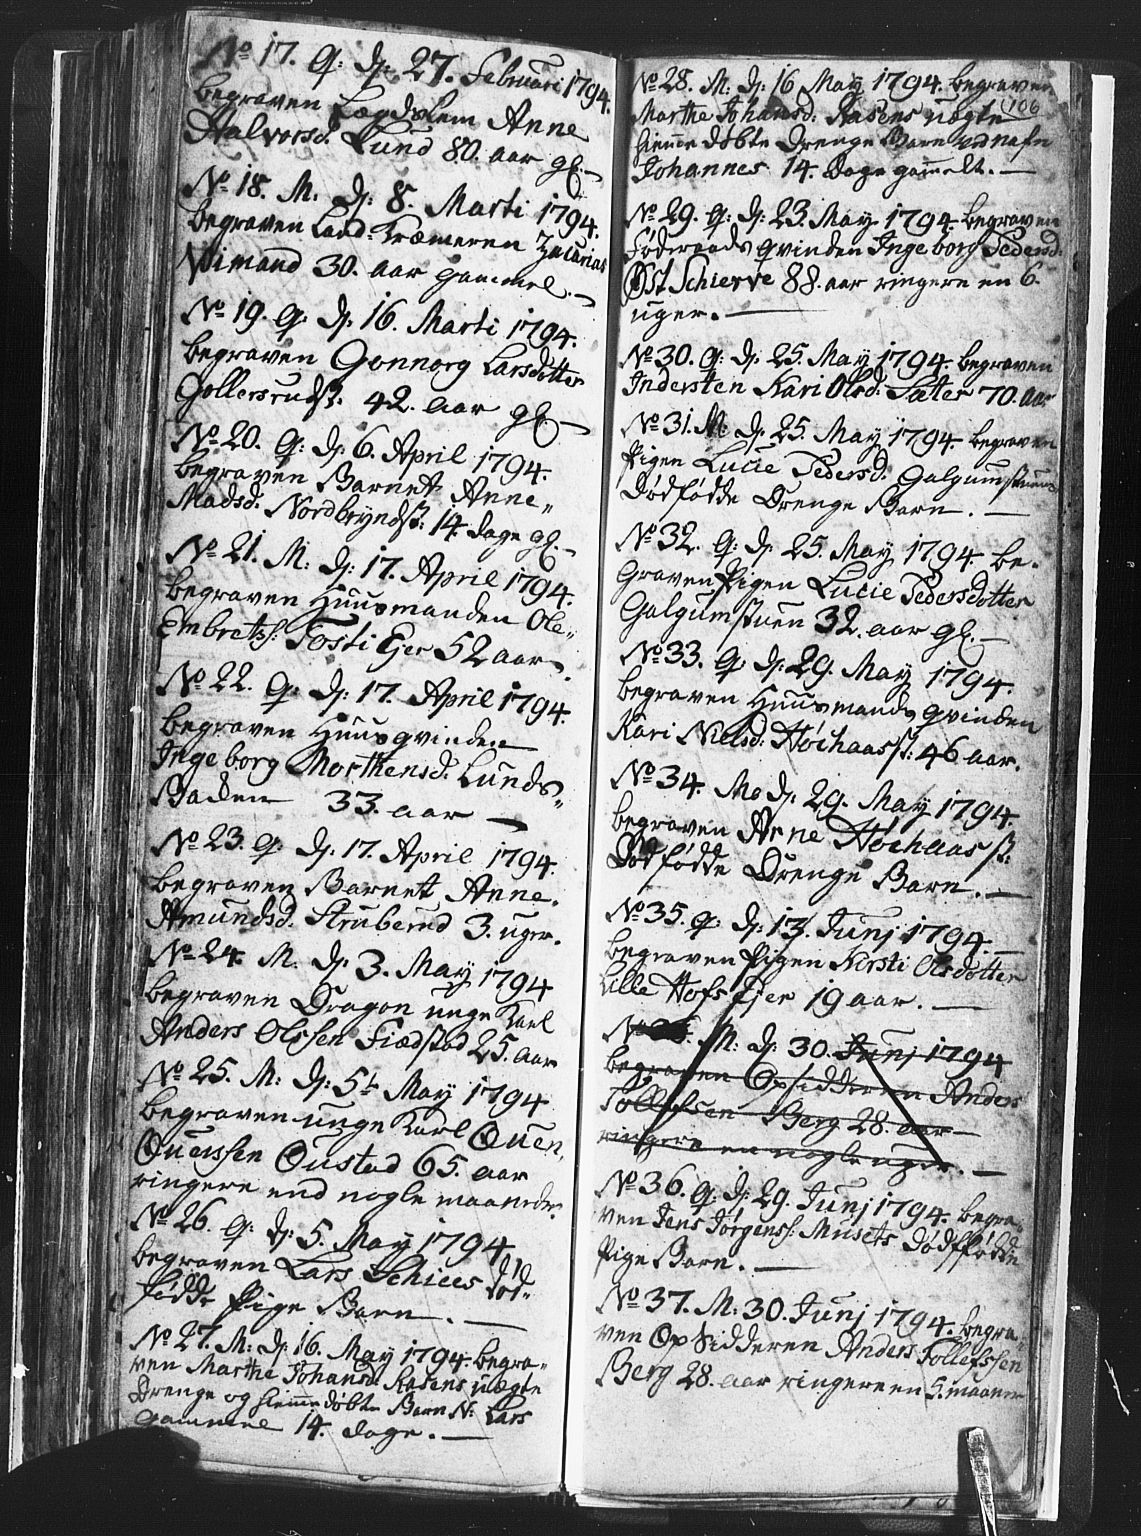 No 17. Q: d: 27. Februari 1794.
begraven Lægdslem Anne
Halvorsd. Lund 80. aar gl.
No 18. M. d: 8. Marti 1794.
begraven Land-Kræmeren Zacarias
Wimand 30. aar gammel.
No 19. Q: d: 16. Marti 1794.
begraven Gonnorg Larsdotter
Gollersrudsß: 42. aar gl.
No 20. Q: d: 6. April 1794.
begraven Barnet Anne
Madsd. Nordbryndß: 14. dage gl.
No 21. M: d: 17. April 1794.
begraven Huusmanden Ole
Embretsß: Tosti Eger 52 aar.
No 22. Q: d: 17. April 1794.
begraven Huusqvinden
Ingeborg Morthensd: Lunds
Baden 33. aar
No 23. Q: d: 17. April 1794.
begraven Barnet Anne
Amundsd. Struberud 3. uger.
No 24. M. d: 3. May 1794
begraven Dragon unge Karl
Anders Olssen Fiædstad 25. aar
No 25. M: d: 5t May 1794
begraven unge Karl Ouen
Ouenssen Oustad 65. aar
ringere end nogle maaneder.
No 26. Q: d: 5. May 1794
begraven Lars Schiees død-
fødde Pige Barn.
No 27. M: d: 16. May 1794. begra-
ven Marthe Johansd: Rasens uægte
Drenge og hiemmedøbte Barn N: Lars
gammel 14. dage.
No 28. M: d: 16 May 1794. begraven
106
Marthe Johansd: Rasens uægte
hiemmedøbte Drenge Barn ved nafn
Johannes 14. dage gammelt.
No 29. Q: d: 23 May 1794. begraven
Føderaads qvinden Ingeborg Pedersd:
Øst Schierve 88. aar ringere en 6.
uger.
No 30. Q: d: 25. May 1794. begraven
Indersten Kari Olsd: Sæter 70. aar
No 31. M: d: 25. May 1794. begraven
Pigen Lucie Pedersd: Galgumstuens
Dødfødde Drenge Barn.
No 32. Q: d: 25. May 1794. be-
graven Pigen Lucie Pedersdotter
Galgumstuen 32. aar gl.
No 33. Q: d: 29. May 1794.
begraven Huusmands qvinden
Kari Nielsd: Høchaasß: 46 aar.
No 34. M: d: 29. May 1794.
begraven Arne Høchaasß:
Dødfødde Drenge Barn.
No 35. Q: d: 13. Junj 1794.
begraven Pigen Kersti Olsdotter
Lille Hofs Ejer 19 aar.
No M: d: 30. Junj 1794
begraven Opsidderen Anders
Tollefsen Berg 28. aar
ringere en nogle uger.
No 36. Q: d: 29. Junj 1794. begra-
ven Jens Jørgensß: Musets Dødfødde
Pige Barn.
No 37. M: 30. Junj 1794. begra-
ven Opsidderen Anders Tollefssen
Berg 28. aar ringere en 5. maaner